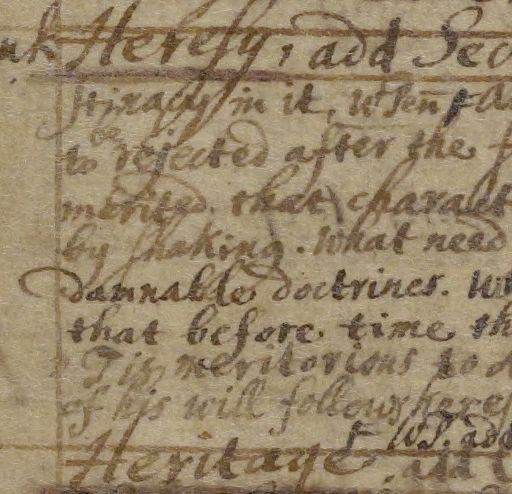 Heresy, add Sec
stinacy in it, when
to be rejected after the
merited that charact
by snaking. What need
damnable doctrines. W
that before time th
Tis meritorious to d
of his will follows heres
Heritage, add